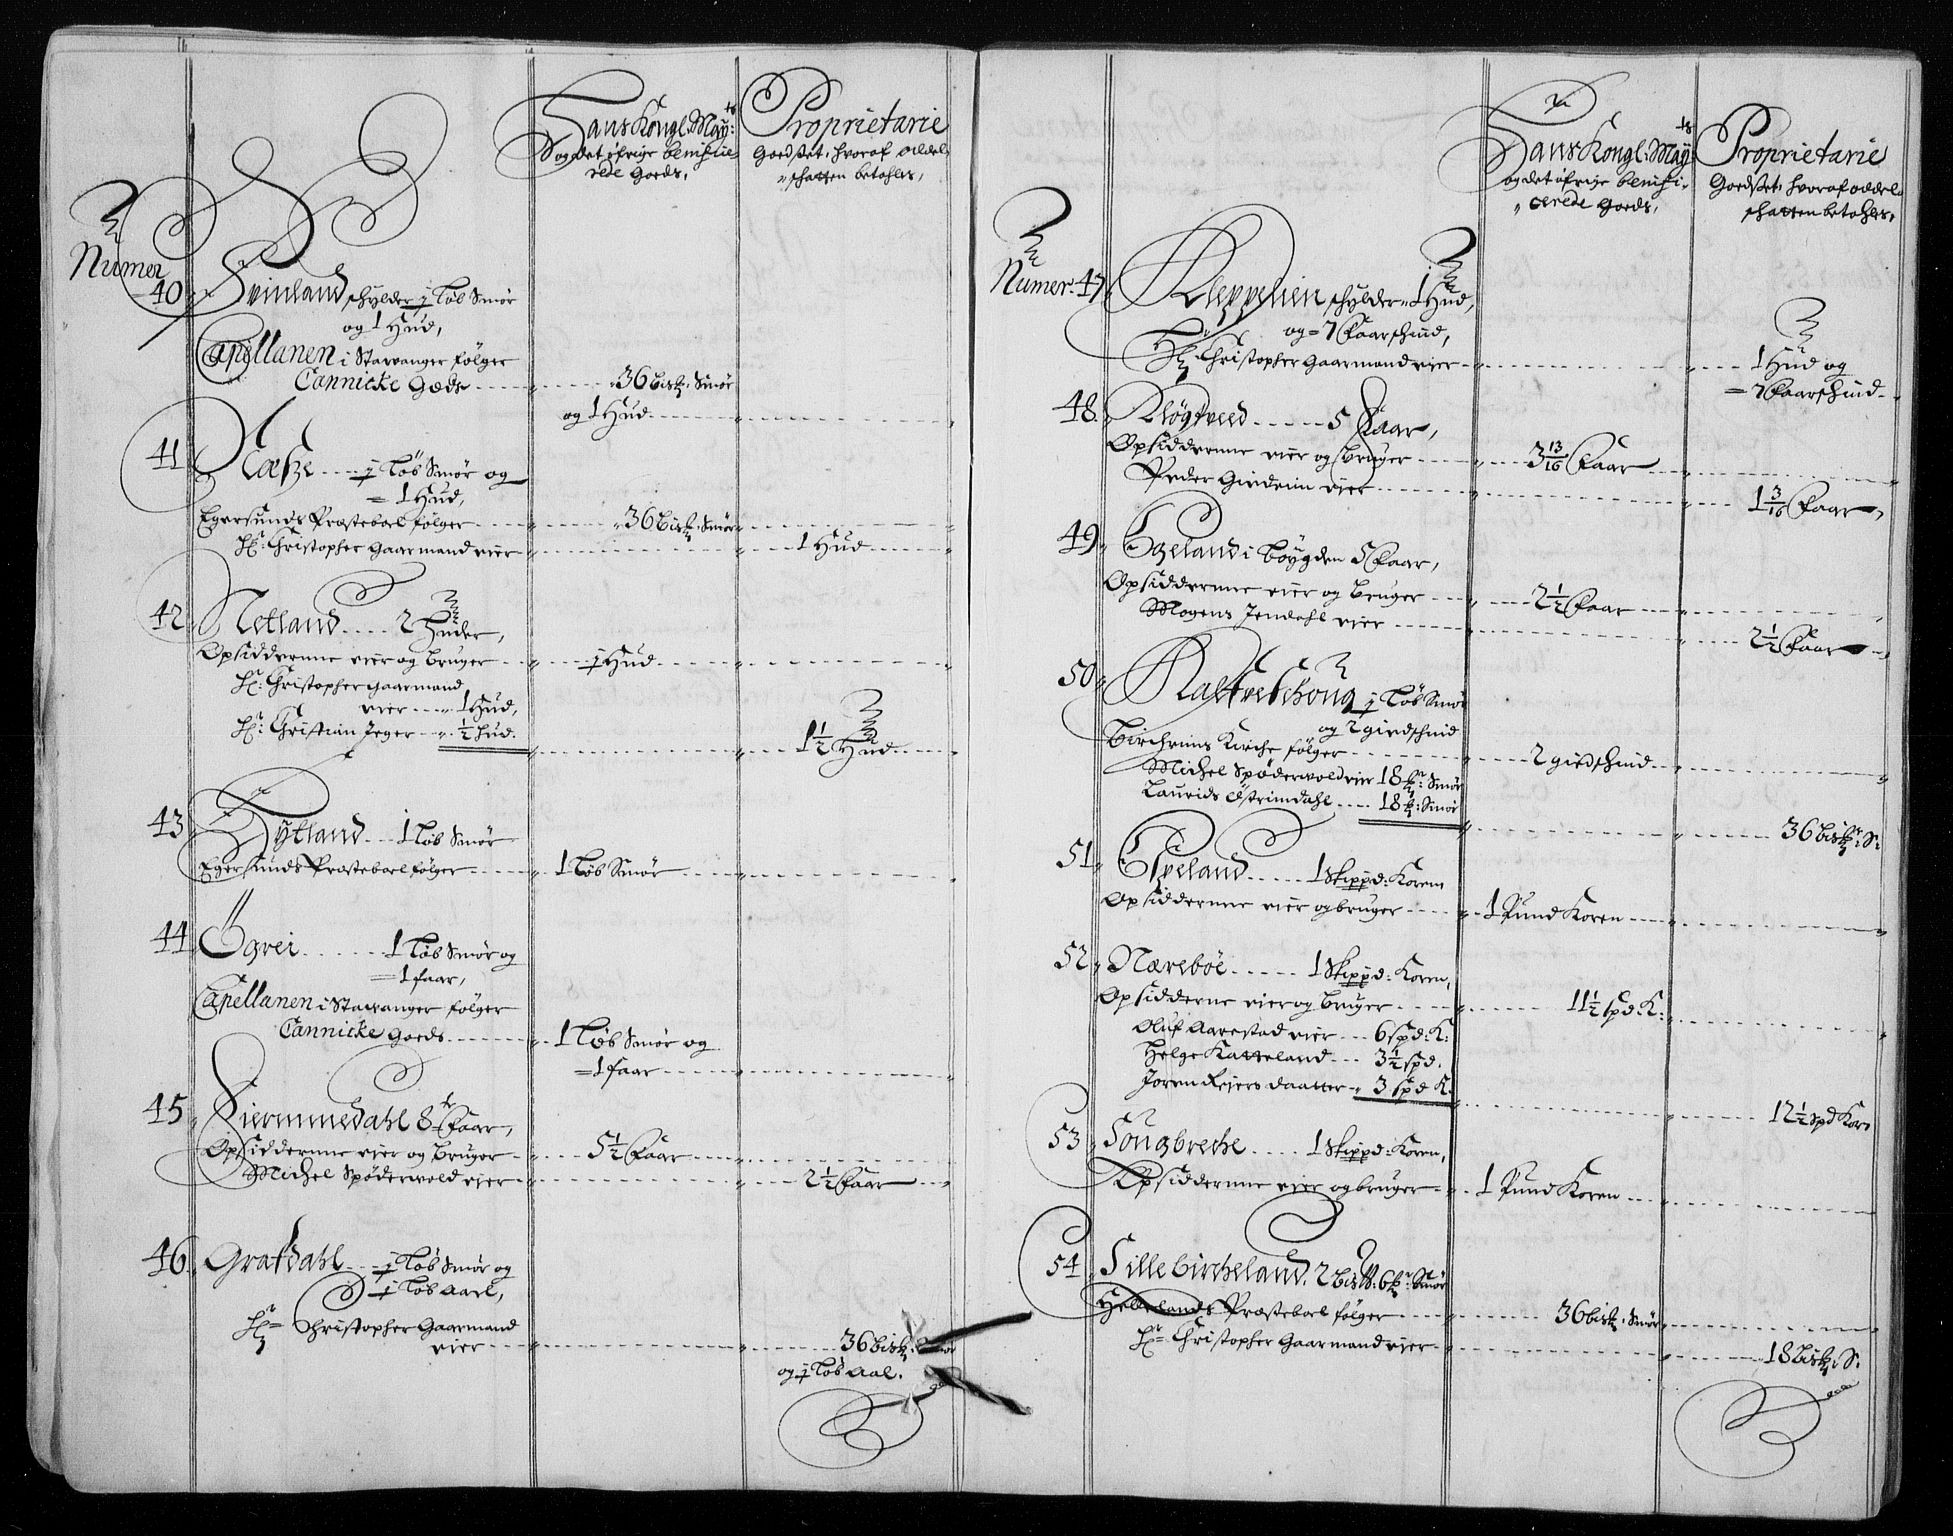 Hans Kongl: May:ts
og det øfrige benificie-
rede Goeds,
Proprietarie
Goedset, hvoraf oddel
schatten betahles,
Numer
40 Svinland schylder j Løb Smør
og 1 Hud,
Capellanen i Stavanger følger
Cannicke Gods 36 bisk: Smør
og 1 Hud
41 j Løb Smør og
1 Hud,
Egersunds Præsteboel følger 36 bisk: Smør
Hr: Christopher Gaarmand eier 1 Hud
42 Netland 2 Huder,
Opsidderne eier og bruger j Hud
Hr: Christopher Gaarmand
eier 1 Hud,
Hr: Christian Jeger ½ hud. 1½ Hud
43 Hytland 1 Løb Smør
Egersunds Præsteboel følger 1 Løb Smør
44 Ogrei 1 Løb Smør og
1 faar,
Capellanen i Stavanger følger
Cannicke goeds 1 Løb Smør og
1 faar
45 8 Faar,
Opsidderne eier og Bruger 5½ Faar
Michel Spøderwold eier 2½ Faar
46 Grafdahl j Løb Smør og
j Løb Aael,
Hr: Christopher Gaarmand
eier 36 bisk: Smør
og j Løb Aal.
Hans Kongl: May:ts
og det øfrige benifi-
cerede Goeds,
Proprietarie
Goedset, hvoraf oddel
schatten betahles,
Numer: 47 Kleppelien schylder 1 Hud,
og 7 Faarschind,
Hr: Christopher Gaarmand eier 1 Hud og
7 Faarschind
48 Kløgtveed 5 Faar,
Opsidderne eier og bruger 3 13/16 Faar
Peder Girdeim eier 1 3/16 Faar,
49 Egeland i bøygden 5 Faar,
Opsidderne eier og Bruger 2½ Faar
Mogens Jendahl eier 2½ Faar
50 j Løb Smør
og 2 giedschind
Birchrims Kirche følger 2 giedschind
Michel Spøderwold eier 18 mr: Smør
Laurids Østrimdahl 18 mr: Smør 36 bisk: S:
51 Espeland 1 Skippd: Koren
Opsidderne eier og bruger 1 Pund Koren
52 Nærebøe 1 Skippd: Koren,
Opsidderne eier og Bruger 11½ spd: K:
Oluf Aarestad eier 6 spd: K:
Helge Katteland 3½ spd.
Joren Reiers daatter 3 spd K. 12½ spd Kor:
53 Sougbreche 1 Skippd: Koren,
Opsidderne eier og bruger 1 Pund Koren
54 Lille bircheland. 2 6 mr: Smør
Hellelands Præsteboel følger 36 bisk: Smør
Hr: Christopher Gaarmand eier 18 bisk: S: